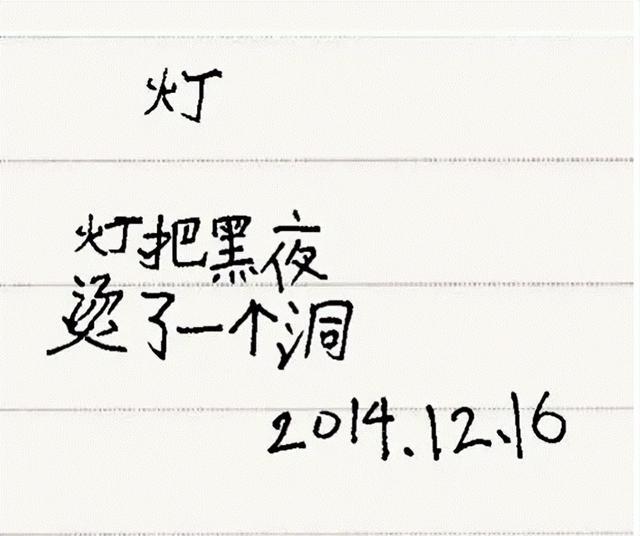 灯
灯把黑夜
烫了一个洞
2014.12.16